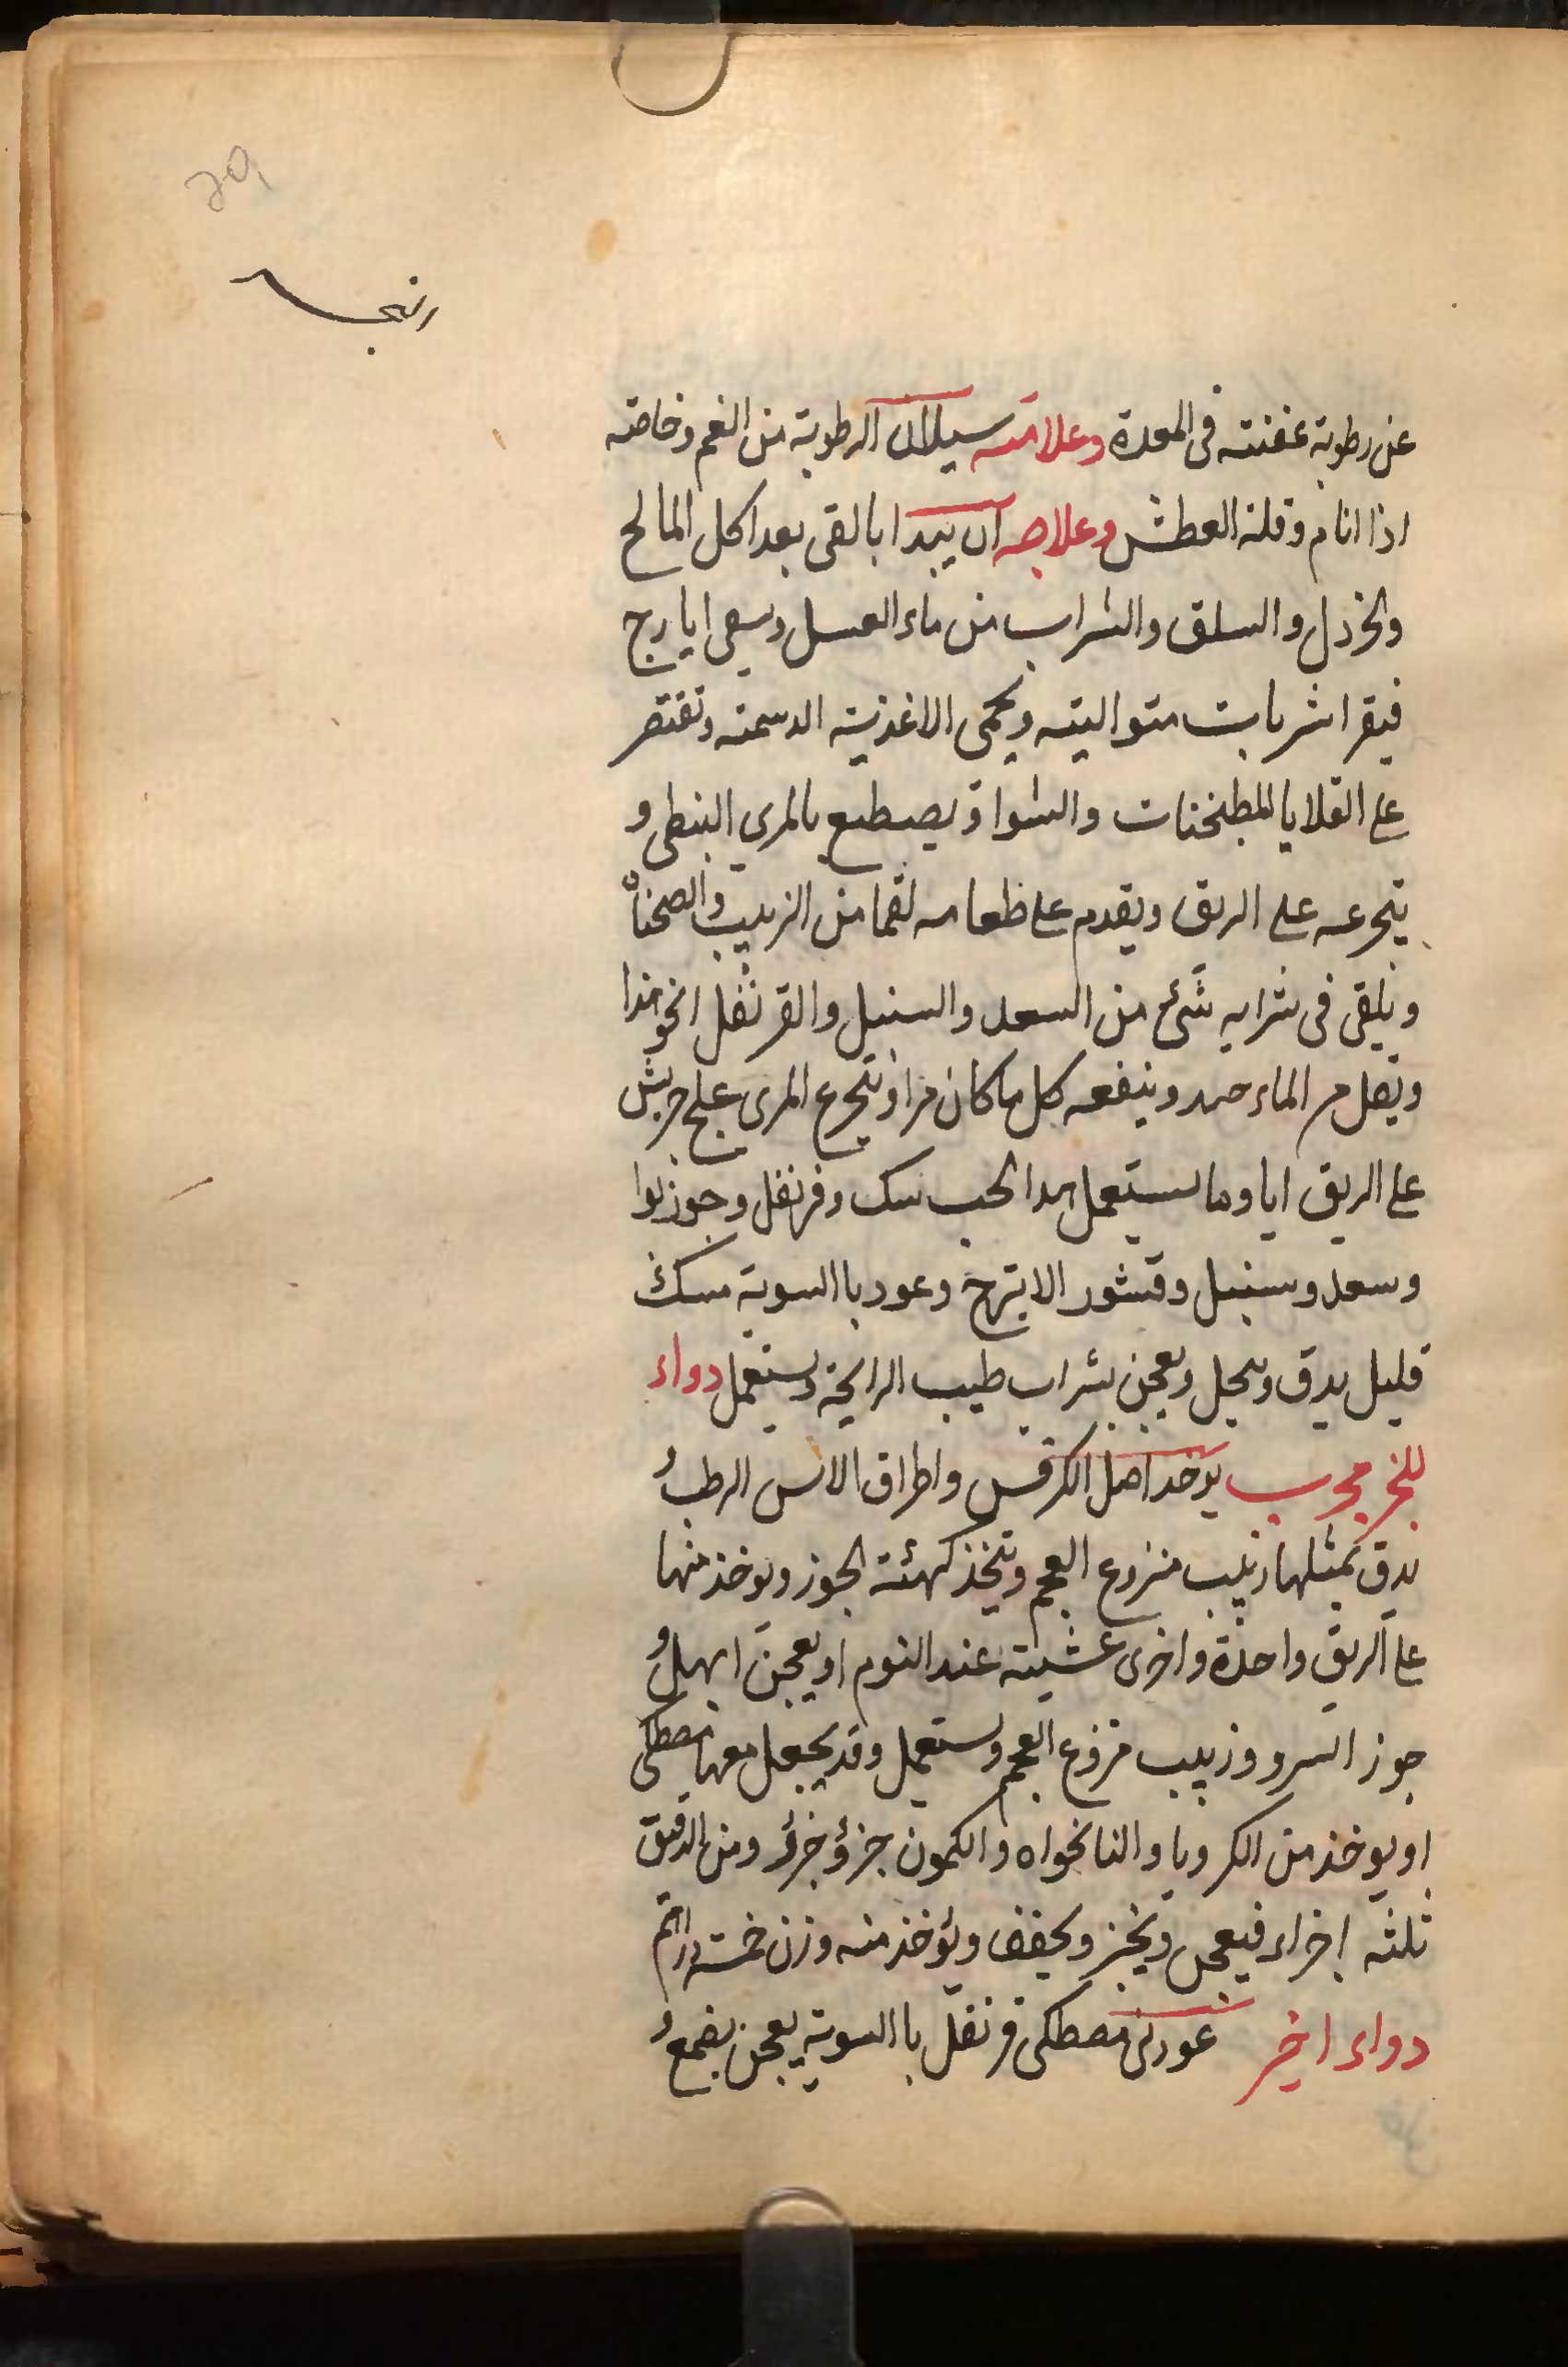 عن رطوبة عفنته فى المعدة وعلامته سيلان الرطوبة من الفم وخاصته
اذا انام وقلة العطش وعلاجه ان يبدا بالقى بعد اكل المالح
والخردل والسلق والشراب من ماء العسل ويسقى ايارج
فيقرا شربات متواليته ويحمى الاغذيته الدسمته وتقتصر
على القلايا المطبخنات والشوا و يصطبع بالمري النبطى و
يتجرعه على الريق ويقدم على طعامه لقما من الزبيب والصحناة
ويلقى فى شرابه شئ من السعد والسنبل والقرنفل
ويقلل من الماء جهده وينفعه كل ما كان مرا وتتجرع المرى
على الريق اياما ويستعمل هذا الحب سك وقرنفل وجوزبوا
وسعد وسنبل وقشور الاترج وعود باالسوية مسك
قليل يدق وينخل ويعجن بشراب طيب الرايحة ويستعمل دواء
للبخر مجرب يوخد اصل الكرفس واطراف الاس الرطب و
يدق بمثلها زبيب منزوع العجم ويتخذ كهئة الجوز ويوخذ منها
على الريق واحدة واخرى عشيته عند النوم او يعجن ابهل و
جوز السرو وزبيب منزوع العجم ويستعمل وقد يجعل معها مصطكى
او يوخذ من الكرويا والنانخواه والكمون جزؤ جزؤ ومن الدقيق
ثلثه اجزاء فيعجن ويخبز ويجفف ويؤخذ منه وزن خمسة دراهم
دواء اخر عود نى مصطكى قرنفل باالسوية يعجن بصمغ و